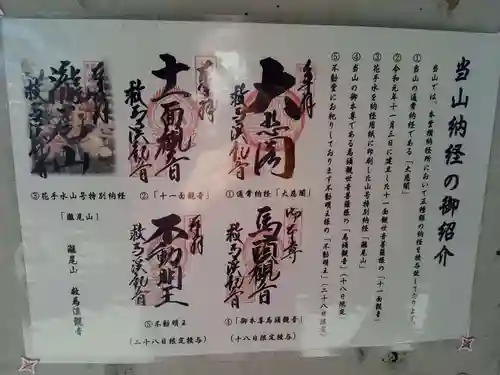 当山納経の御紹介
当山では、本堂横納経所において五種類の納経を授与致しております。
①当山の通常納経である「大悲閣」
②令和元年十一月三日に建立した十一面観世音菩薩様の「十一面観音」
③花手水を納経用紙に印刷した山号特別納経「瀧尾山」
④当山の御本尊である馬頭観世音菩薩様の「馬頭観音」(十八日限定)
⑤不動堂にお祀りしております不動明王様の「不動明王」(二十八日限定)
奉拝
大悲閣
救馬溪観音
①通常納経「大悲閣」
奉拝
十一面観音
救馬溪観音
②「十一面観音」
奉拝
瀧尾山
救馬溪観音
③花手水山号特別納経
「瀧尾山」
御本尊
馬頭観音
救馬溪観音
④「御本尊馬頭観音」
(十八日限定授与)
奉拝
不動明王
救馬溪観音
⑤不動明王
(二十八日限定授与)
瀧尾山 救馬溪観音